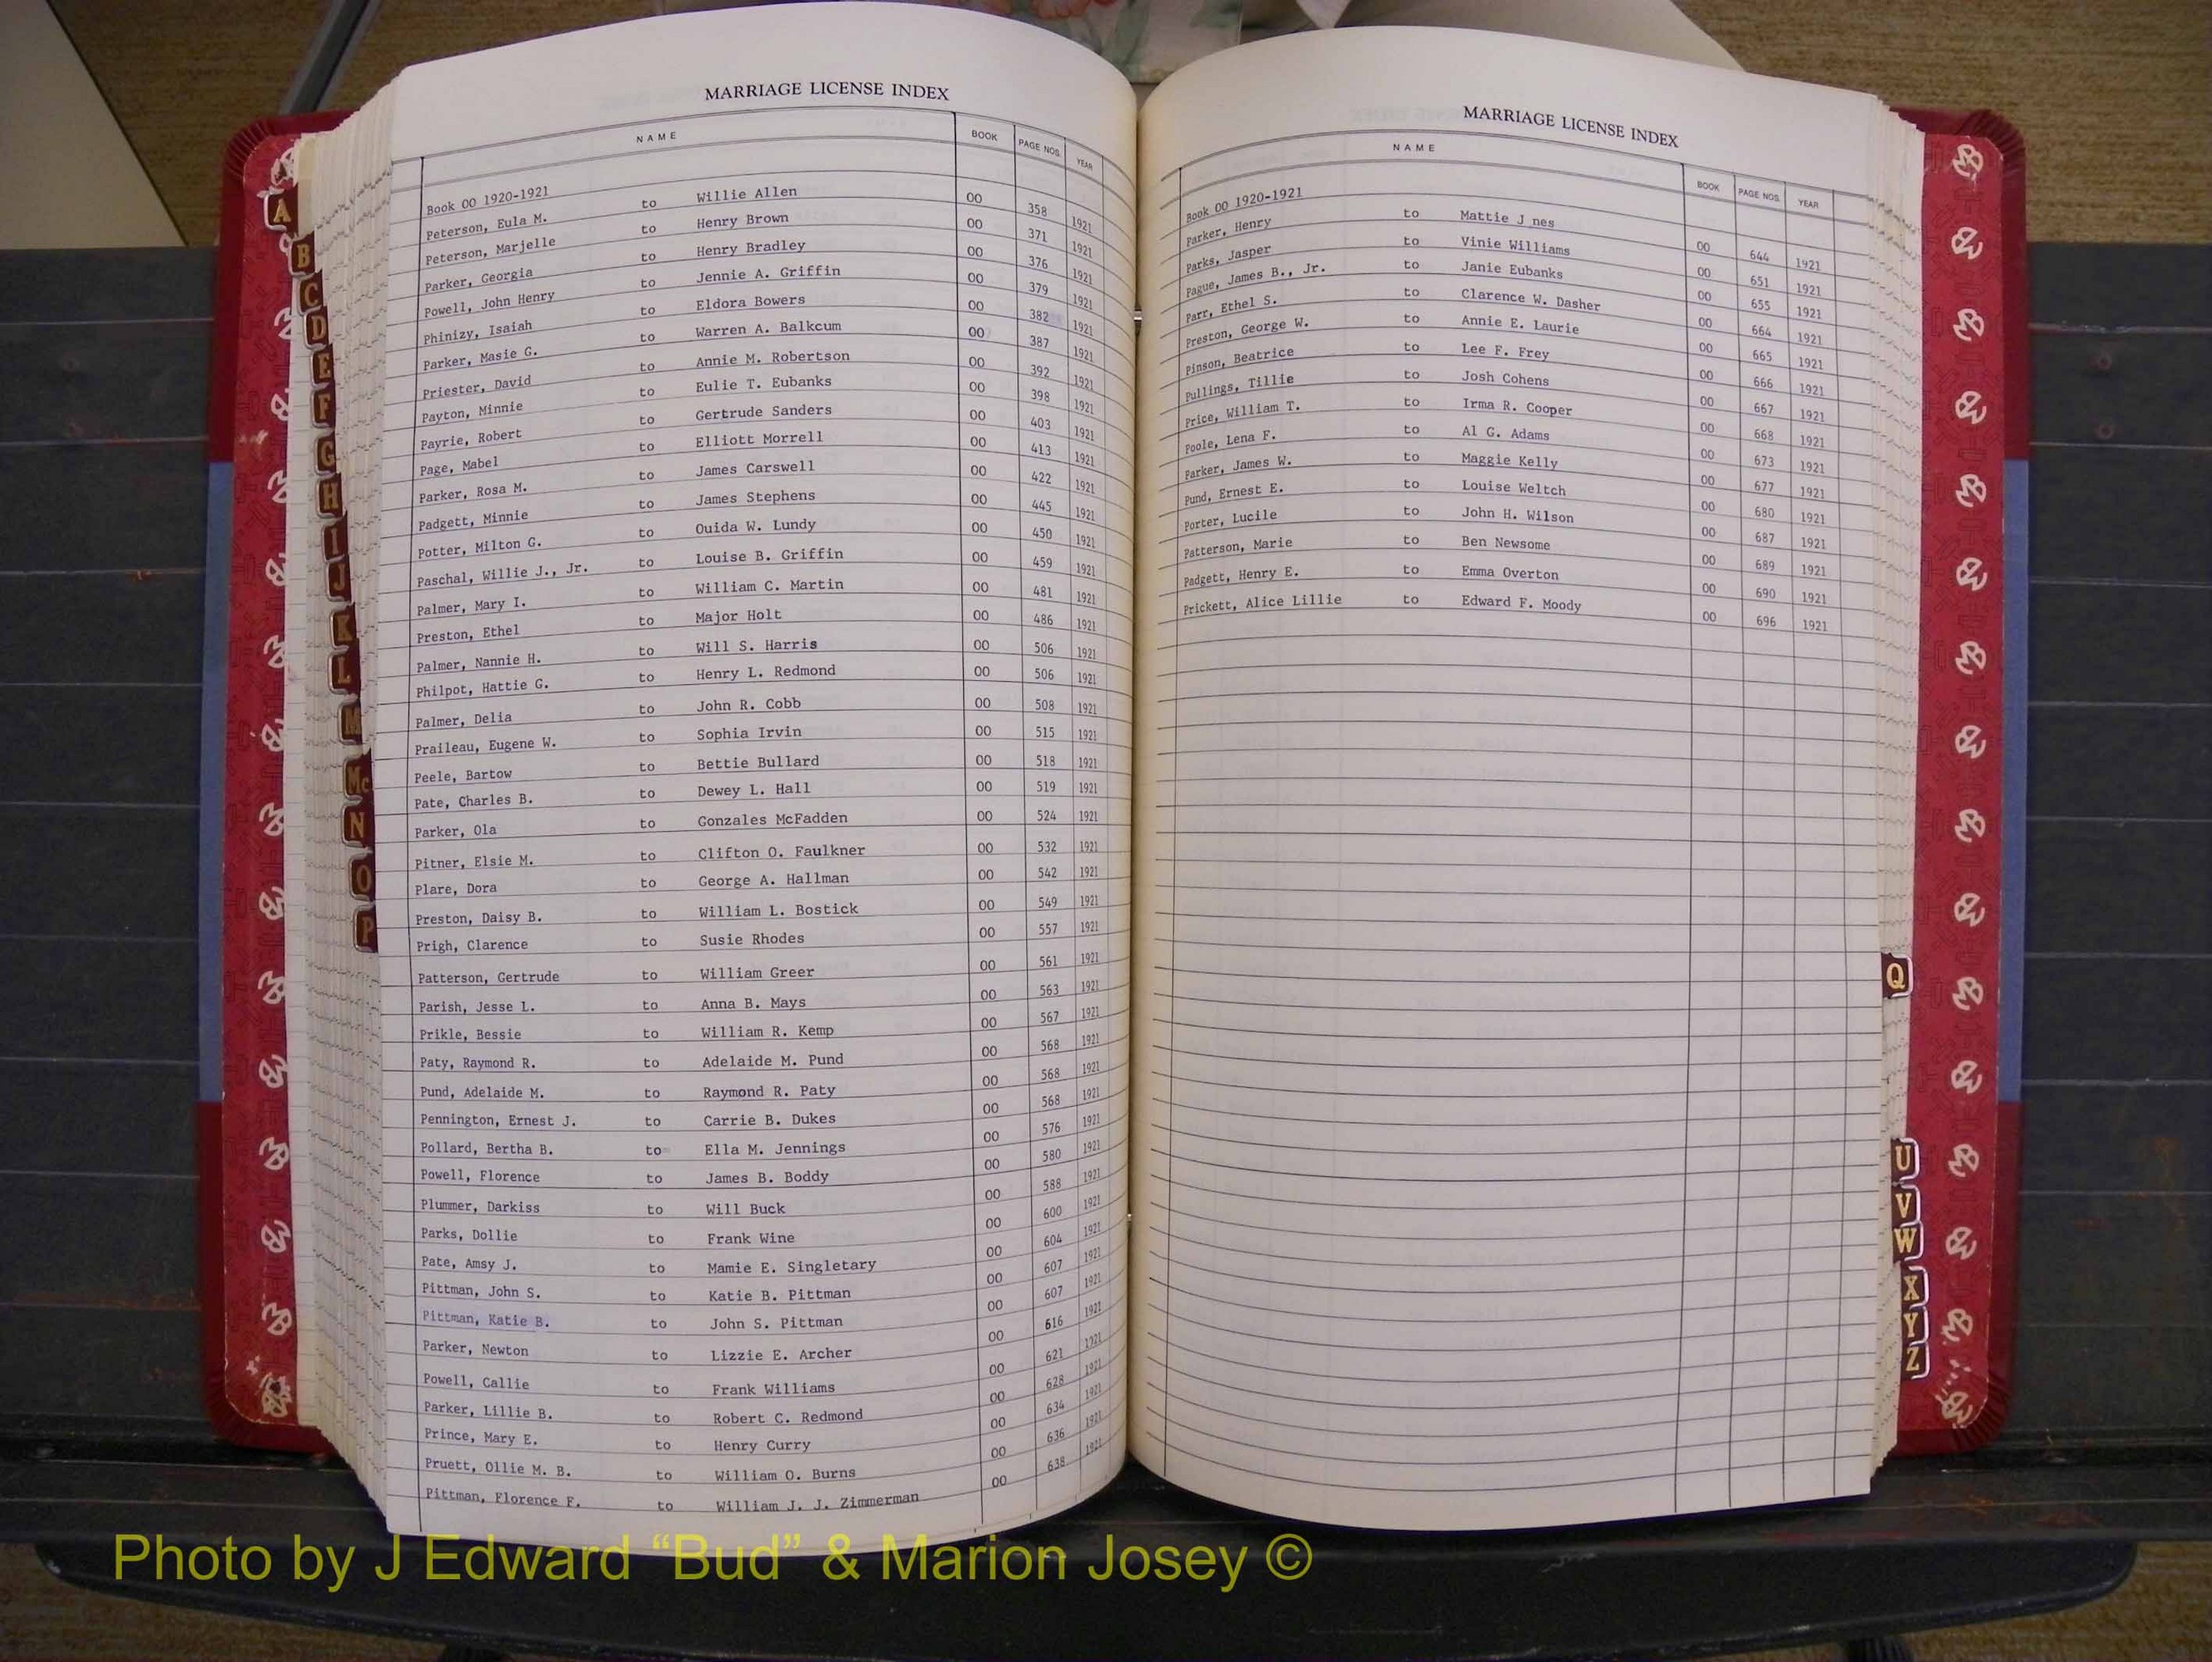 MARRIAGE LICENSE INDEX
NAME BOOK PAGE NOS. YEAR
Book 00 1920-1921
Peterson, Eula M. to Willie Allen 00 358 1921
Peterson, Marjelle to Henry Brown 00 371 1921
Parker, Georgia to Henry Bradley 00 376 1921
Powell, John Henry to Jennie A. Griffin 00 379 1921
Phinizy, Isaiah to Eldora Bowers 00 382 1921
Parker, Masie G. to Warren A. Balkcum 00 387 1921
Priester, David to Annie M. Robertson 00 392 1921
Payton, Minnie to Eulie T. Eubanks 00 398 1921
Payrie, Robert to Gertrude Sanders 00 403 1921
Page, Mabel to Elliott Morrell 00 413 1921
Parker, Rosa M. to James Carswell 00 422 1921
Padgett, Minnie to James Stephens 00 445 1921
Potter, Milton G. to Ouida W. Lundy 00 450 1921
Paschal, Willie J., Jr. to Louise B. Griffin 00 459 1921
Palmer, Mary I. to William C. Martin 00 481 1921
Preston, Ethel to Major Holt 00 486 1921
Palmer, Nannie H. to Will S. Harris 00 506 1921
Philpot, Hattie G. to Henry L. Redmond 00 506 1921
Palmer, Delia to John R. Cobb 00 508 1921
Praileau, Eugene W. to Sophia Irvin 00 515 1921
Peele, Bartow to Bettie Bullard 00 518 1921
Pate, Charles B. to Dewey L. Hall 00 519 1921
Parker, Ola to Gonzales McFadden 00 524 1921
Pitner, Elsie M. to Clifton O. Faulkner 00 532 1921
Plare, Dora to George A. Hallman 00 542 1921
Preston, Daisy B. to William L. Bostick 00 549 1921
Prigh, Clarence to Susie Rhodes 00 557 1921
Patterson, Gertrude to William Greer 00 561 1921
Parish, Jesse L. to Anna B. Mays 00 563 1921
Prikle, Bessie to William R. Kemp 00 567 1921
Paty, Raymond R. to Adelaide M. Pund 00 568 1921
Pund, Adelaide M. to Raymond R. Paty 00 568 1921
Pennington, Ernest J. to Carrie B. Dukes 00 568 1921
Pollard, Bertha B. to Ella M. Jennings 00 576 1921
Powell, Florence to James B. Boddy 00 580 1921
Plummer, Darkiss to Will Buck 00 588 1921
Parks, Dollie to Frank Wine 00 600 1921
Pate, Amsy J. to Mamie E. Singletary 00 604 1921
Pittman, John S. to Katie B. Pittman 00 607 1921
Pittman, Katie B. to John S. Pittman 00 607 1921
Parker, Newton to Lizzie E. Archer 00 616 1921
Powell, Callie to Frank Williams 00 621 1921
Parker, Lillie B. to Robert C. Redmond 00 628 1921
Prince, Mary E. to Henry Curry 00 634 1921
Pruett, Ollie M. B. to William O. Burns 00 636 1921
Pittman, Florence F. to William J. J. Zimmerman 00 638 1921
A
B
C
D
E
F
G
H
I
J
K
L
M
Mc
N
O
P
MARRIAGE LICENSE INDEX
NAME BOOK PAGE NOS. YEAR
Book 00 1920-1921
Parker, Henry to Mattie J nes 00 644 1921
Parks, Jasper to Vinie Williams 00 651 1921
Pague, James B., Jr. to Janie Eubanks 00 655 1921
Parr, Ethel S. to Clarence W. Dasher 00 664 1921
Preston, George W. to Annie E. Laurie 00 665 1921
Pinson, Beatrice to Lee F. Frey 00 666 1921
Pullings, Tillie to Josh Cohens 00 667 1921
Price, William T. to Irma R. Cooper 00 668 1921
Poole, Lena F. to Al G. Adams 00 673 1921
Parker, James W. to Maggie Kelly 00 677 1921
Pund, Ernest E. to Louise Weltch 00 680 1921
Porter, Lucile to John H. Wilson 00 687 1921
Patterson, Marie to Ben Newsome 00 689 1921
Padgett, Henry E. to Emma Overton 00 690 1921
Prickett, Alice Lillie to Edward F. Moody 00 696 1921
Q
U
V
W
X
Y
Z
Photo by J Edward “Bud” & Marion Josey ©